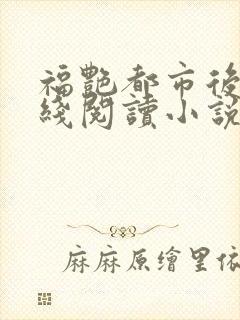 福艷都市後
綫閱讀小說
麻麻原繪里依